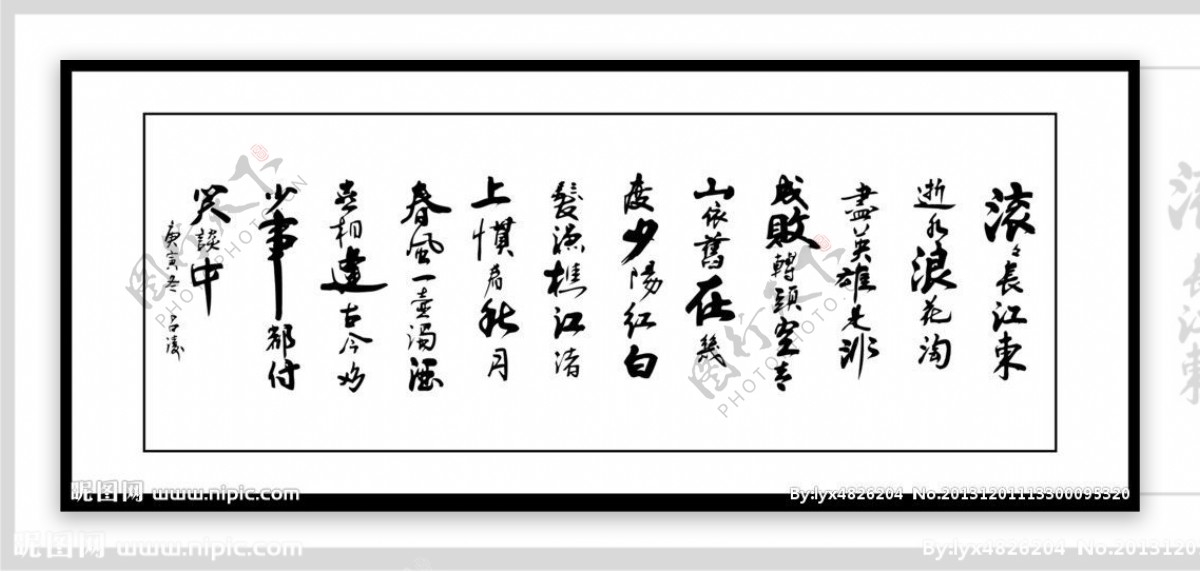 滚々長江東
逝水浪花淘
盡英雄是非
成敗轉頭空青
山依舊在幾
度夕陽红白
髮漁樵江渚
上慣看秋月
春風一壺濁酒
喜相逢古今多
少事都付
笑談中
庚寅冬
昵图网 www.nipic.com
By:lyx4826204 No.20131201113300095320
昵图网 www.nipic.com
By:lyx4826204 No.2013120